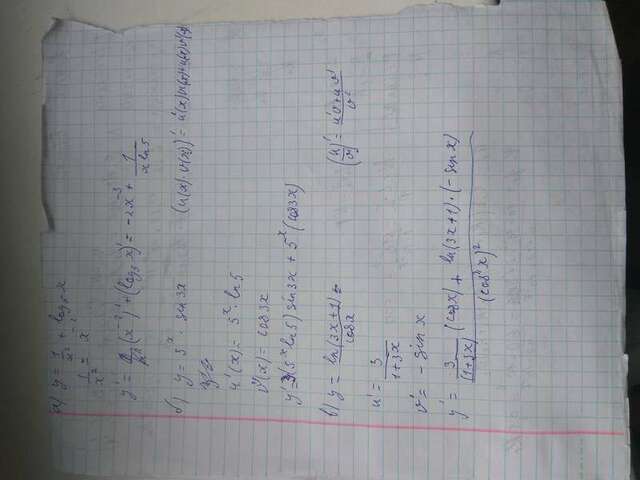 а) y = 1/x² + log₅x
1/x² = x⁻²
y' = (x⁻²)' + (log₅x)' = -2x⁻³ + 1/(x ln5)
б) y = 5ˣ · sin3x (u(x)·v(x))' = u'(x)v(x)+u(x)v'(x)
u'(x) = 5ˣ · ln5
v'(x) = cos3x
y' = (5ˣ ln5) sin3x + 5ˣ (cos3x)
в) y = ln(3x+1)/cosx (u/v)' = (u'v+uv')/v²
u' = 3/(1+3x)
v' = -sinx
y' = (3/(1+3x) (cosx) + ln(3x+1)·(-sinx))/(cosx)²